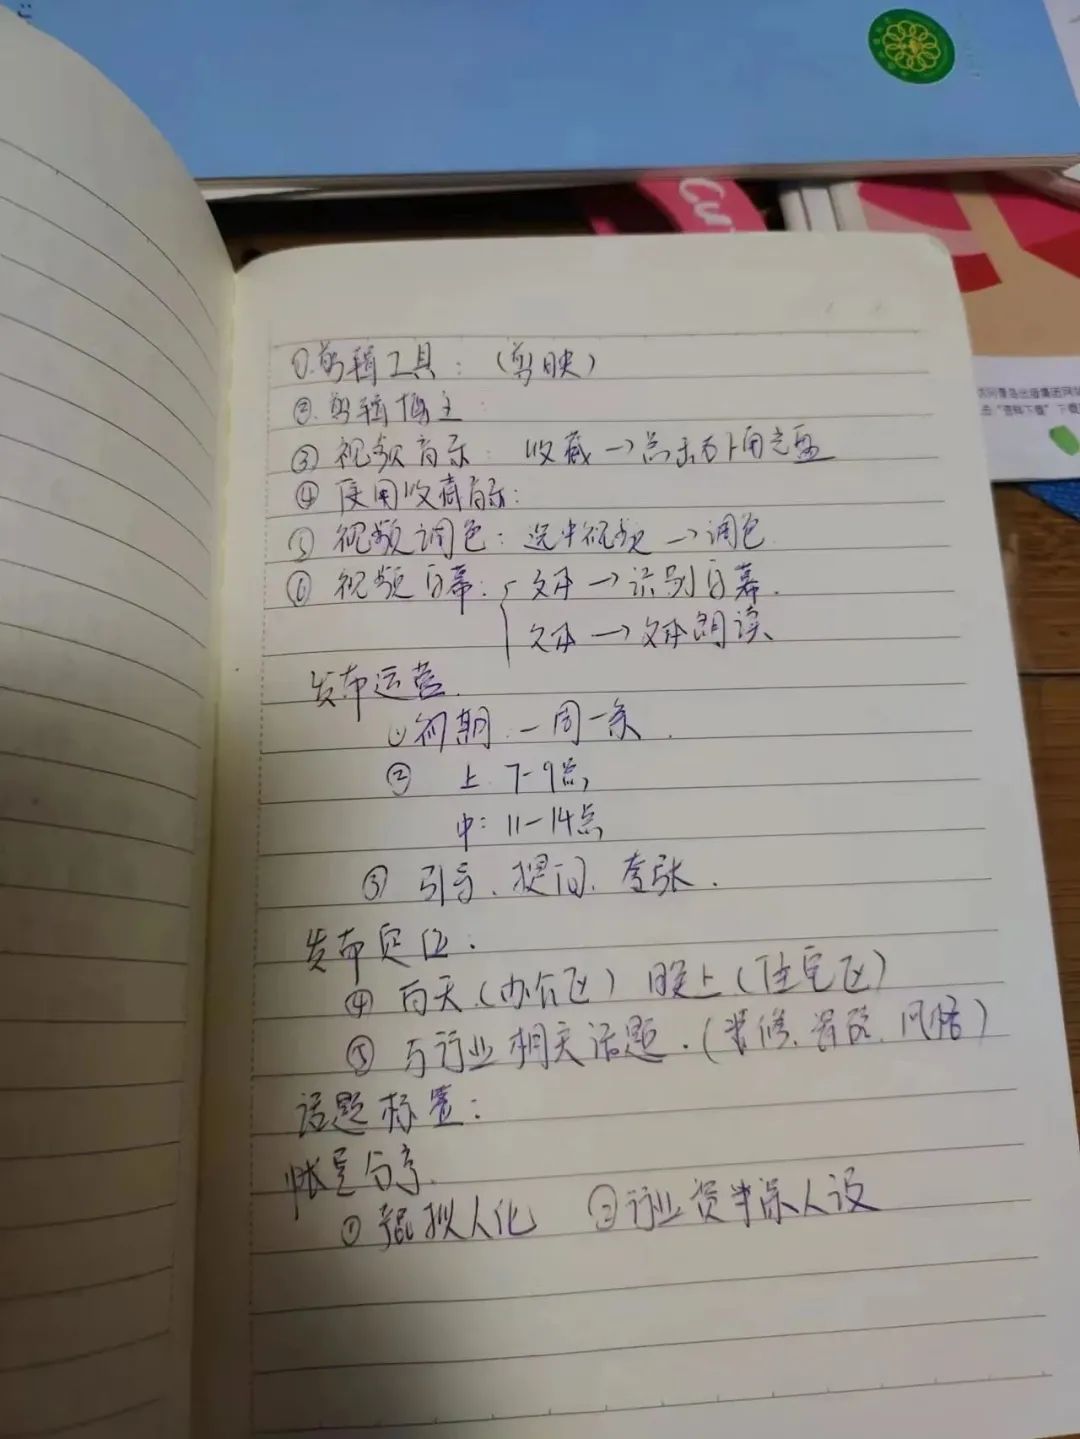 Cu
访问青岛出版集团网站
击“资料下载”下载
①剪辑工具：（剪映）
②剪辑博主：
③视频音乐：收藏→点击右下角完
④使用收藏音乐：
⑤视频调色：选中视频→调色
⑥视频字幕：文本→识别字幕.
文本→文本朗读
发布运营.
①初期：一周一条.
② 上：7-9点，
中：11-14点
③引导、提问、夸张.
发布定位：
④白天（办公区）晚上（住宅区）
⑤与行业相关话题.（装修、风格）
话题标置：
帐号分享.
①拟人化 ②行业资深人设